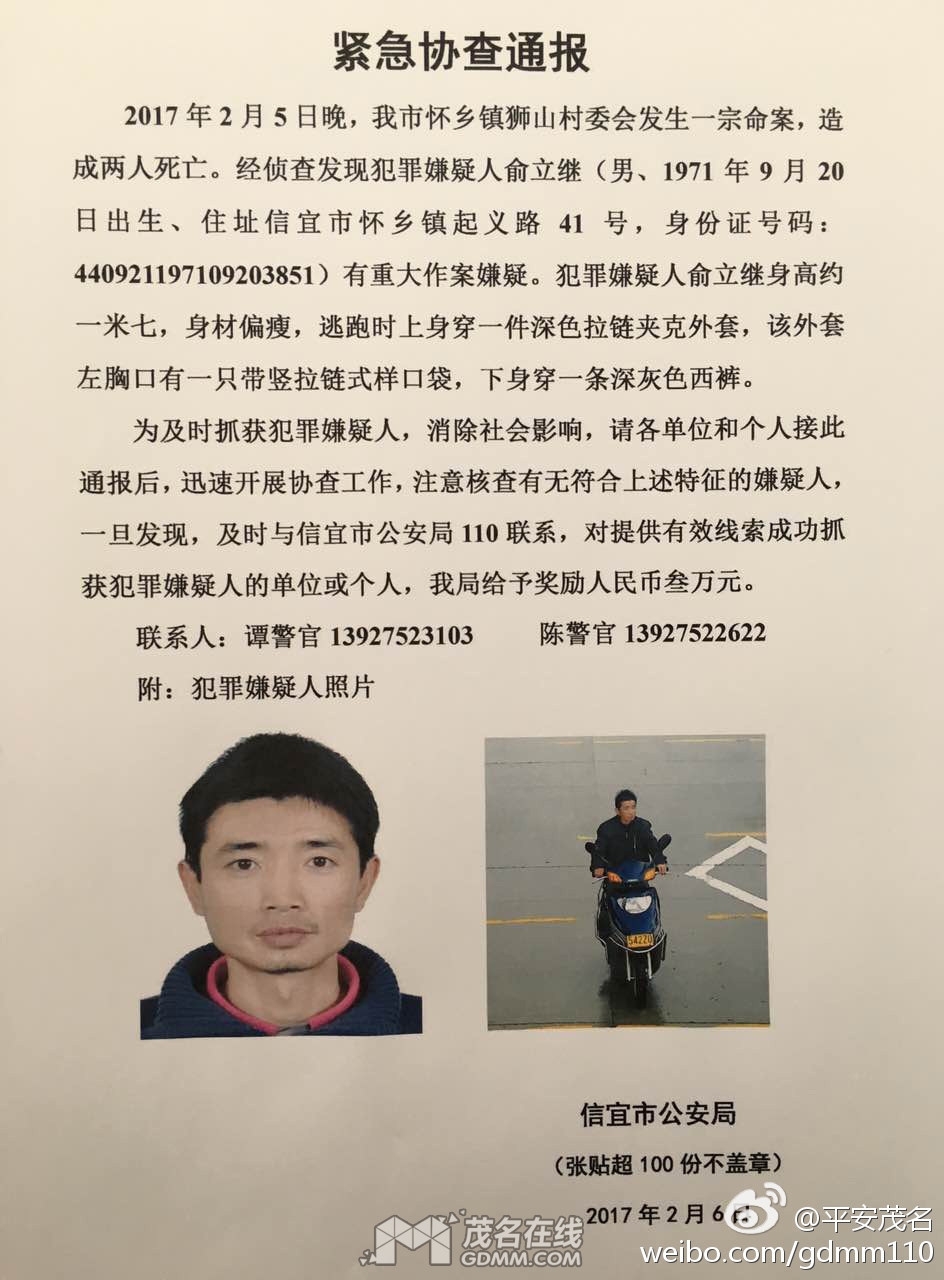 紧急协查通报
2017年2月5日晚，我市怀乡镇狮山村委会发生一宗命案，造
成两人死亡。经侦查发现犯罪嫌疑人俞立继（男、1971年9月20
日出生、住址信宜市怀乡镇起义路41号，身份证号码：
440921197109203851）有重大作案嫌疑。犯罪嫌疑人俞立继身高约
一米七，身材偏瘦，逃跑时上身穿一件深色拉链夹克外套，该外套
左胸口有一只带竖拉链式样口袋，下身穿一条深灰色西裤。
为及时抓获犯罪嫌疑人，消除社会影响，请各单位和个人接此
通报后，迅速开展协查工作，注意核查有无符合上述特征的嫌疑人，
一旦发现，及时与信宜市公安局110联系，对提供有效线索成功抓
获犯罪嫌疑人的单位或个人，我局给予奖励人民币叁万元。
联系人：谭警官13927523103 陈警官13927522622
附：犯罪嫌疑人照片
54220
信宜市公安局
（张贴超100份不盖章）
2017年2月6日
茂名在线
GDMM.COM
@平安茂名
weibo.com/gdmm110